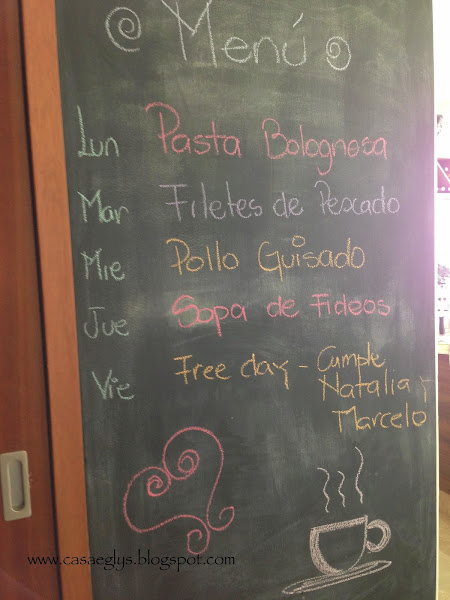 Menú
Lun Pasta Bolognesa
Mar Filetes de Pescado
Mie Pollo Guisado
Jue Sopa de Fideos
Vie Free day - Cumple
Natalia y
Marcelo
www.casaeglys.blogspot.com